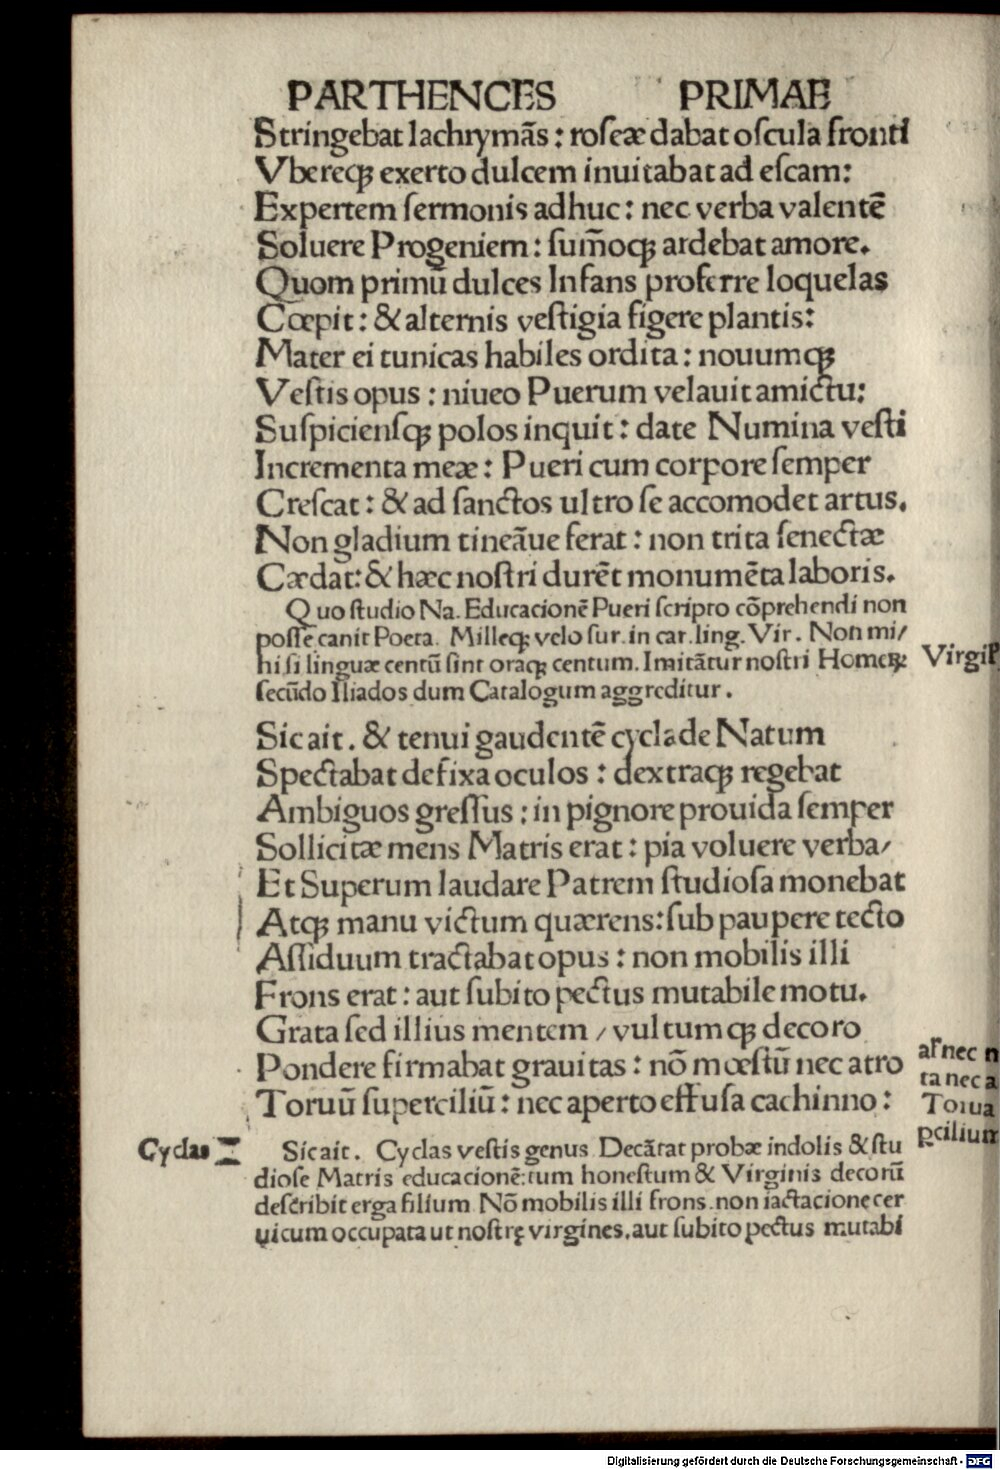 PARTHENCES PRIMAE
Stringebat lachrymās : roſeæ dabat oſcula fronti
Vbereqꝫ exerto dulcem inuitabat ad eſcam:
Expertem ſermonis adhuc : nec verba valentē
Soluere Progeniem : ſum̄oqꝫ ardebat amore.
Quom primū dulces Infans proferre loquelas
Cœpit : & alternis veſtigia figere plantis:
Mater ei tunicas habiles ordita : nouumqꝫ
Veſtis opus : niueo Puerum velauit amictu:
Suſpicienſqꝫ polos inquit : date Numina veſti
Incrementa meæ : Pueri cum corpore ſemper
Creſcat : & ad ſanctos ultro ſe accomodet artus.
Non gladium tineāue ferat : non trita ſenectæ
Cædat: & hæc noſtri durēt monumēta laboris.
Quo ſtudio Na. Educacionē Pueri ſcripto cōprehendi non
poſſe canit Poeta. Milleqꝫ velo ſur. in car. ling. Vir. Non mi/
hi ſi linguæ centū ſint oraqꝫ centum. Imitātur noſtri Homeꝝ:
ſecūdo Iliados dum Catalogum aggreditur.
Virgil
Sic ait. & tenui gaudentē cyclade Natum
Spectabat defixa oculos : dextraqꝫ regebat
Ambiguos greſſus : in pignore prouida ſemper
Sollicitæ mens Matris erat : pia voluere verba/
Et Superum laudare Patrem ſtudioſa monebat
Atqꝫ manu victum quærens: ſub paupere tecto
Aſſiduum tractabat opus : non mobilis illi
Frons erat : aut ſubito pectus mutabile motu.
Grata ſed illius mentem / vultumqꝫ decoro
Pondere firmabat grauitas : nō mœſtū nec atro
Toruū ſuperciliū : nec aperto effuſa cachinno :
nec n
ta nec a
Torua
pcilium
Cyclas
Sic ait. Cyclas veſtis genus. Decātat probæ indolis & ſtu
dioſe Matris educacionē: tum honeſtum & Virginis decorū
deſcribit erga filium. Nō mobilis illi frons. non iactacione cer
uicum occupata ut noſtrę virgines. aut ſubito pectus mutabi
Digitalisierung gefördert durch die Deutsche Forschungsgemeinschaft - DFG